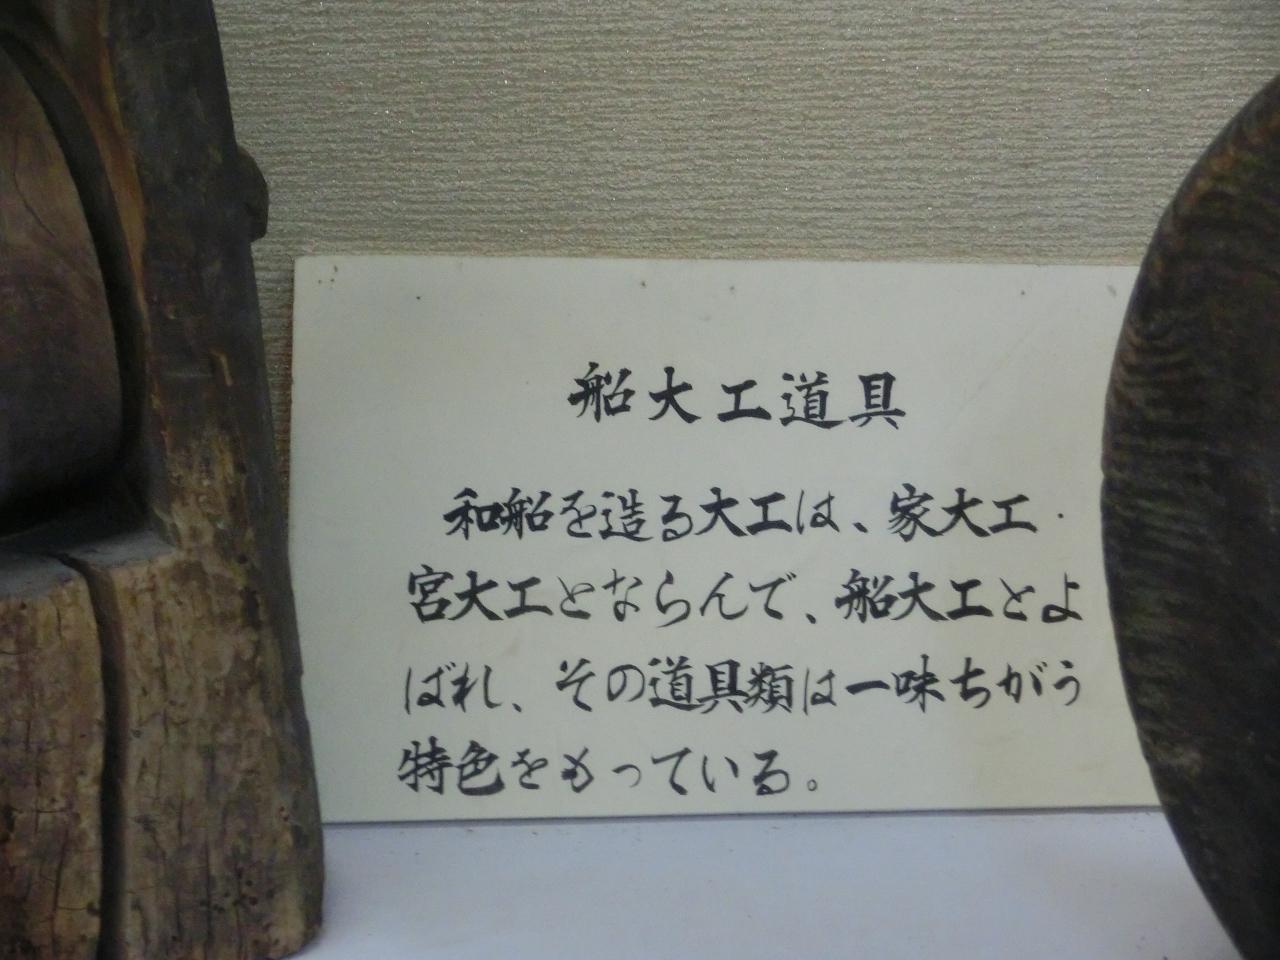 船大工道具
和船を造る大工は、家大工・
宮大工とならんで、船大工とよ
ばれ、その道具類は一味ちがう
特色をもっている。